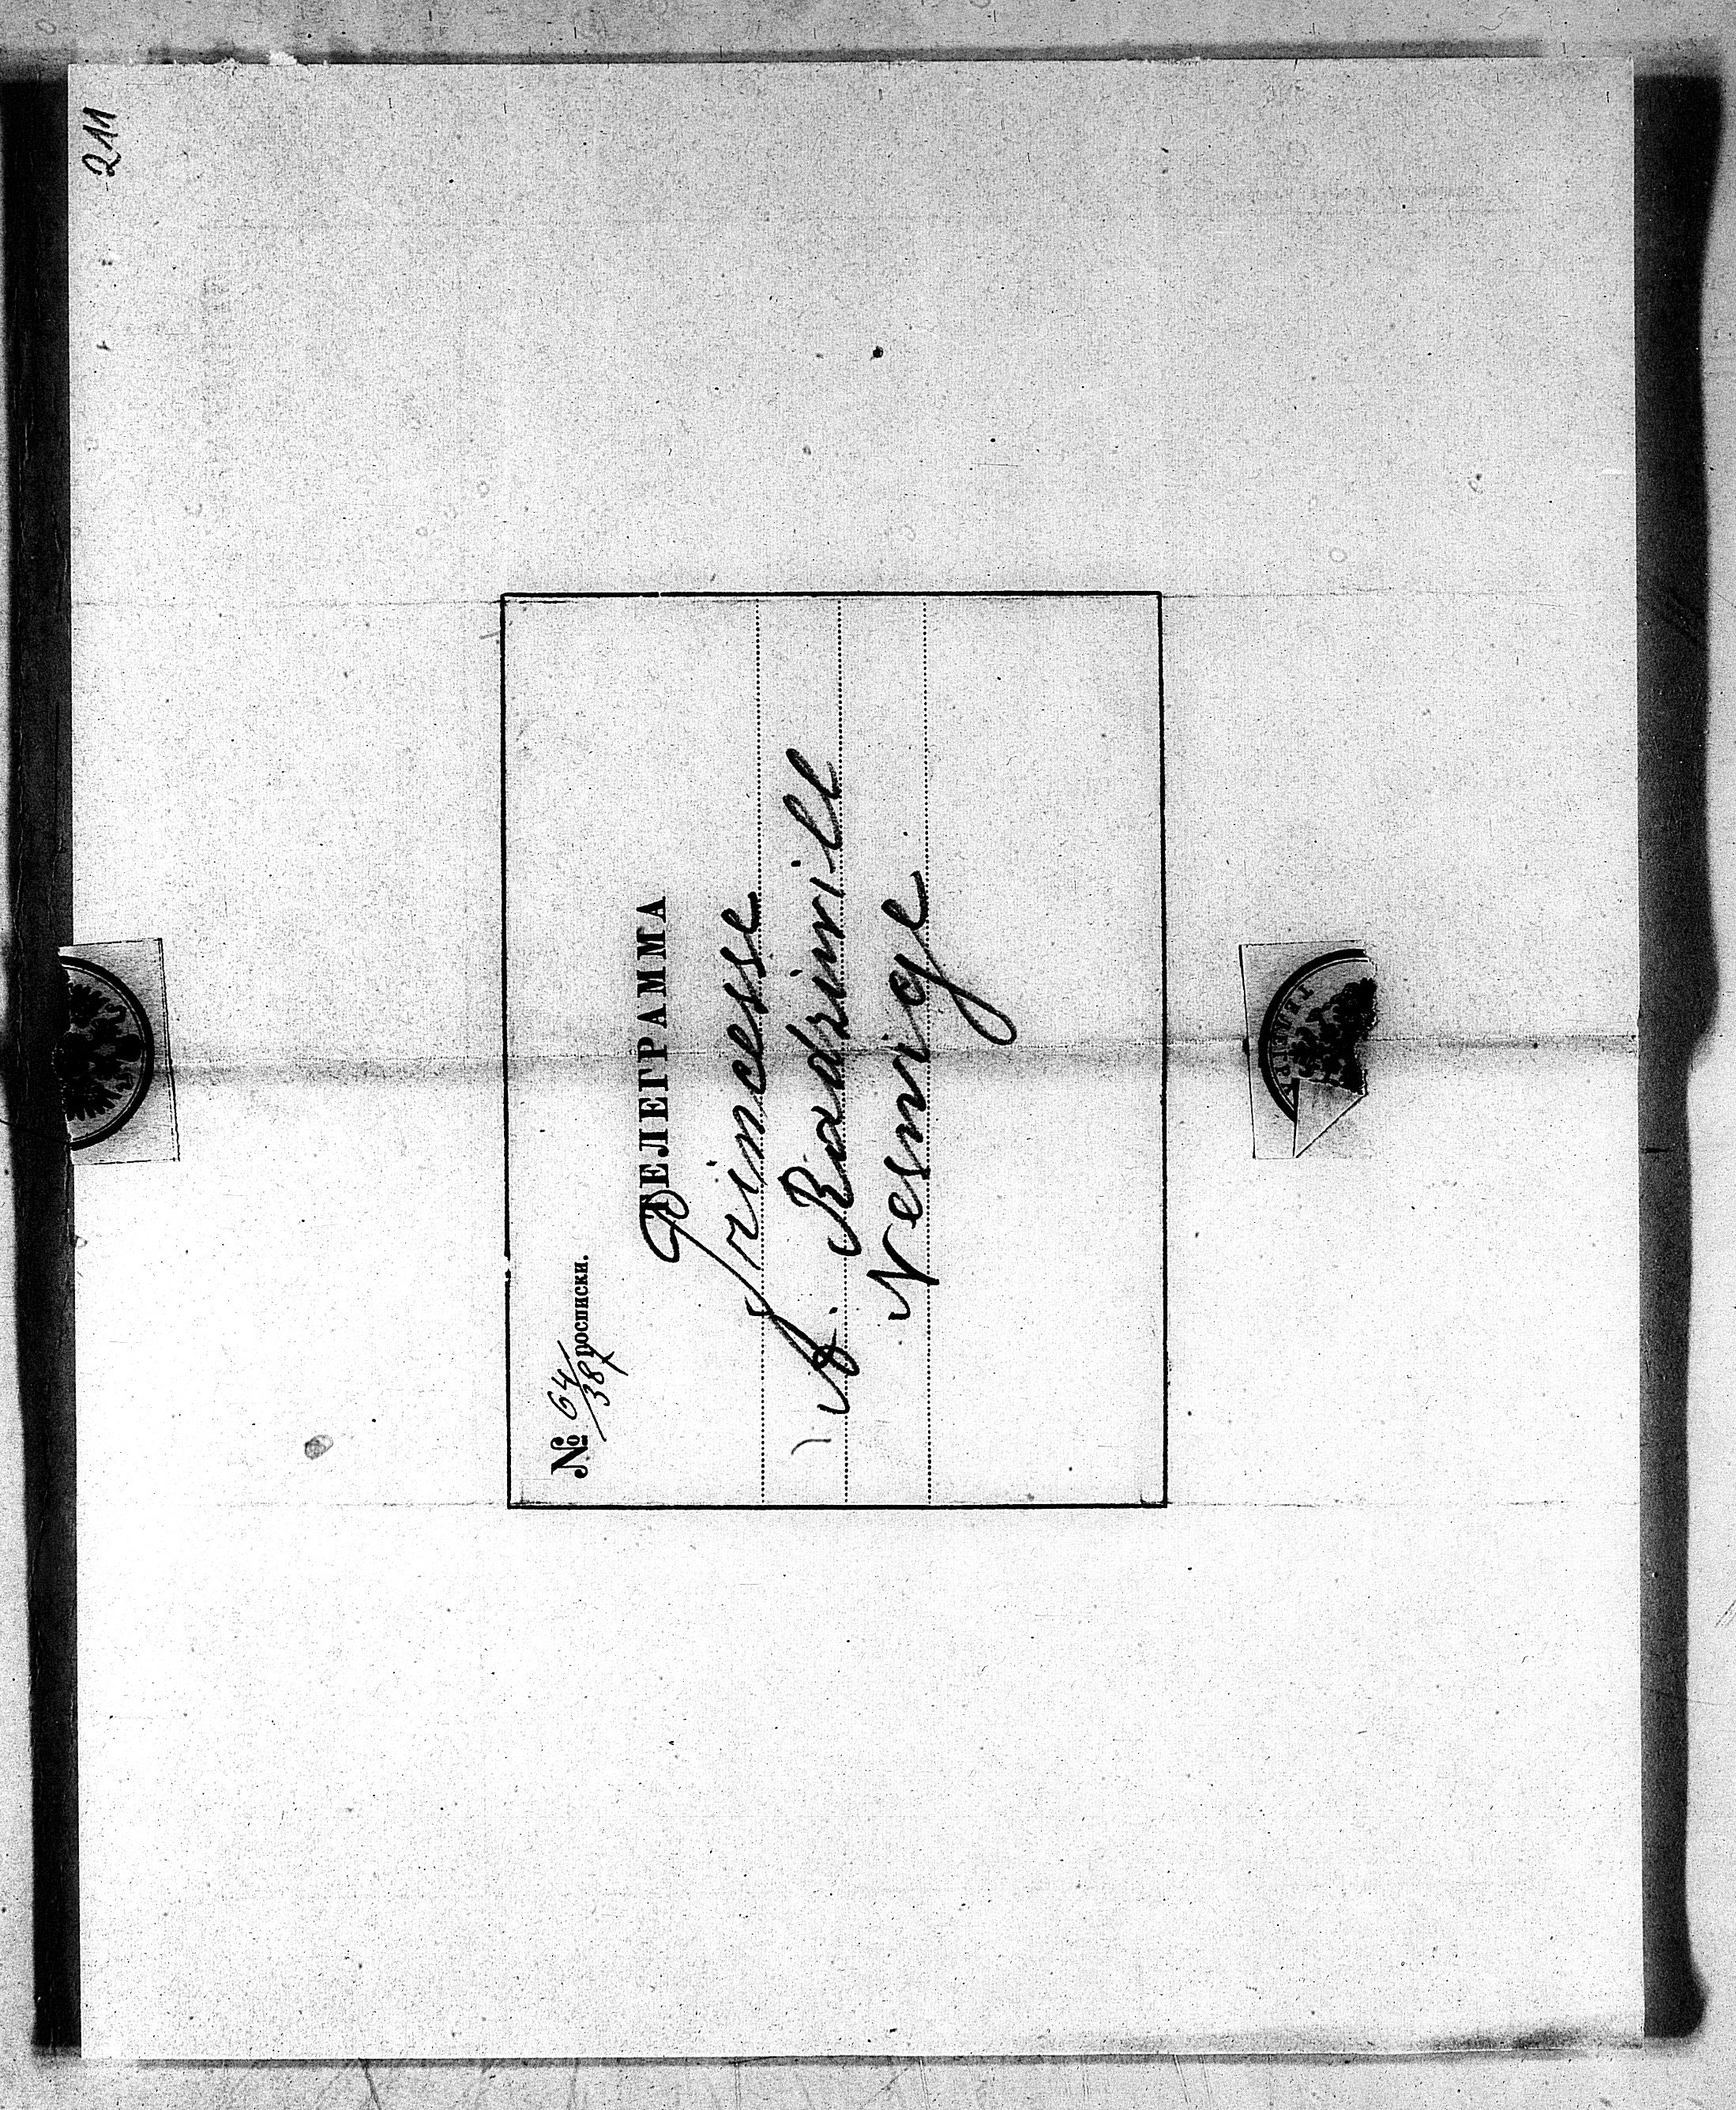 211
№ 64/387 росписки.
ТЕЛЕГРАММА
Princesse
A. Radziwill
Nesvige